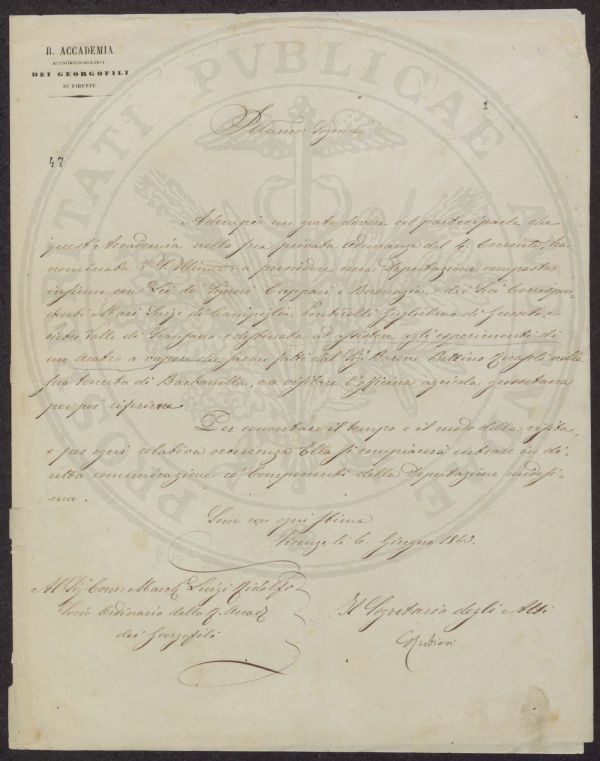 R. ACCADEMIA
ECONOMICO-AGRARIA
DEI GEORGOFILI
DI FIRENZE
1
47
Illumo Signore
Adempio un grato dovere col parteciparle che
quest'Accademia nella sua privata adunanza del 4. Corrente, ha
nominata V. S. Illuma a presedere una Deputazione composta
insieme con Lei de' Signori Cuppari e e dei Socj Corrispon
denti Luigi di Campiglia, Ponticelli Guglielmo di Grosseto e
Pietro Valle di e destinata ad assistere agli esperimenti di
un aratro a vapore che saran fatti dal Sig. Barone Bettino Ricasoli nella
sua tenuta di Barbanella, e a visitare l'officina agricola grossetana
per poi riferirne
Per concertare il tempo e il modo della visita,
e per ogni relativa occorrenza Ella si compiacerà entrare in di
retta comunicazione co' Componenti della Deputazione medesi
ma.
Sono con ogni stima
Firenze li 6. Giugno 1863.
Al Sig. Com: March. Luigi Ridolfi
Socio Ordinario della R. Accad.
dei Georgofili
Il Segretario degli Atti
C Rubieri
PROSPERITATI PUBLICAE AUGENDAE